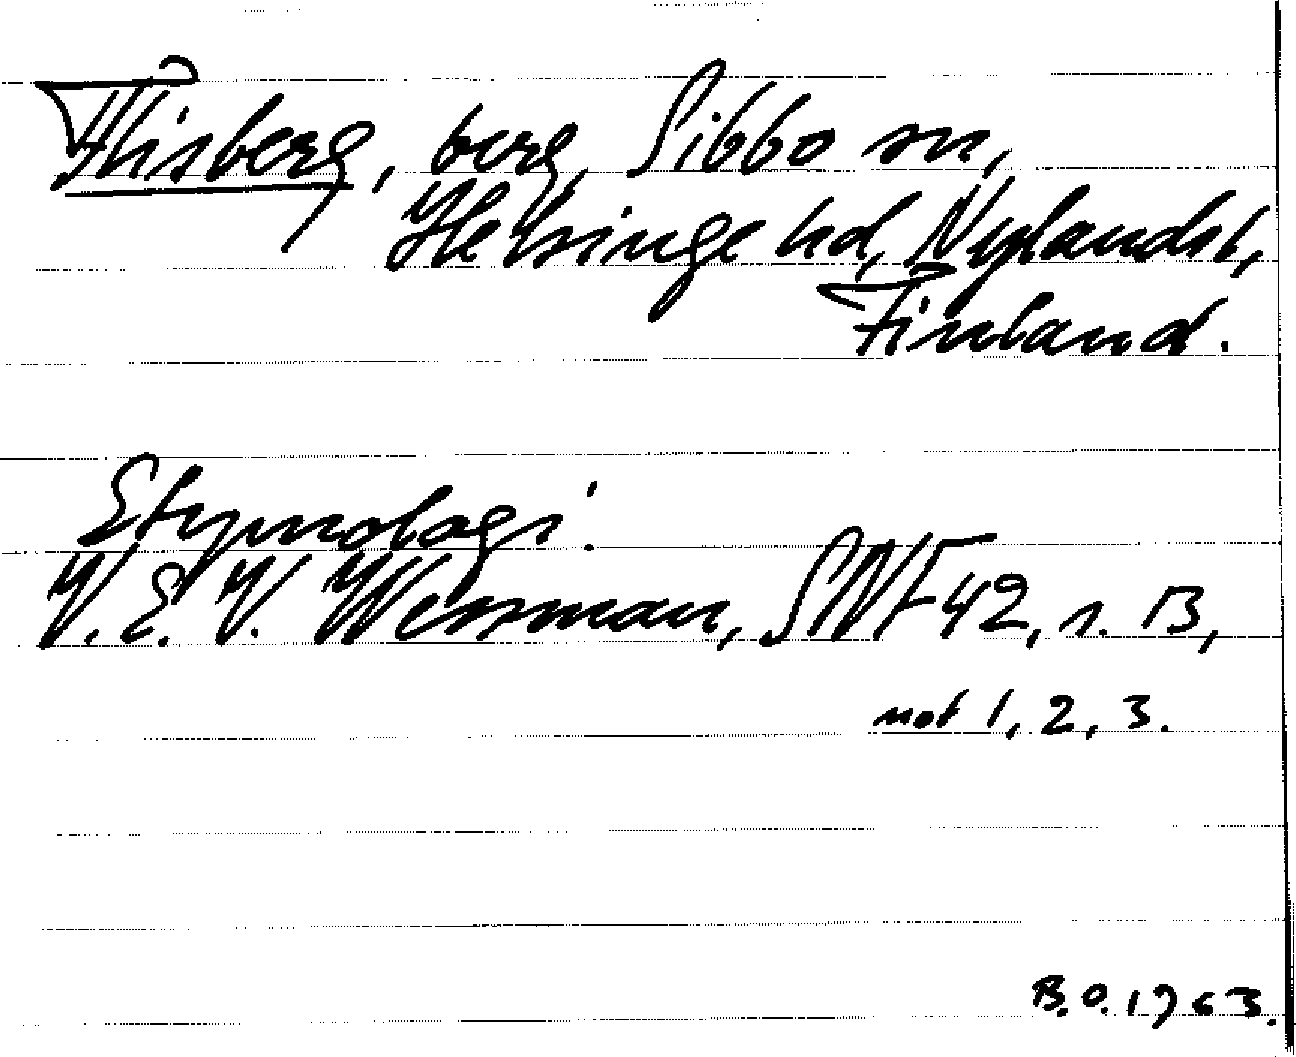 Flisberg, berg, Sibbo sn,
Helsinge hd, Nylands l,
Finland.
Etymologi:
V. E. V. Wessman, SNF 42, s. 13,
not 1, 2, 3.
B.O. 1963.